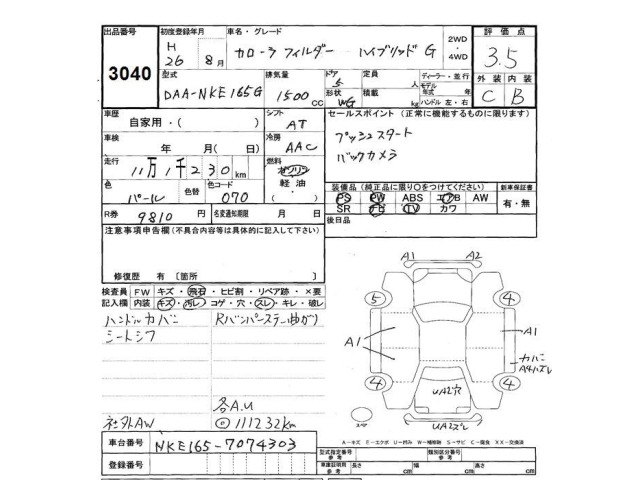 出品番号 3040
初度登録年月 H 26 8月
車名・グレード カローラフィルダー ハイブリッド G
2WD
・4WD
評価点 3.5
型式 DAA-NKE165G
排気量 1500 cc
ドア 5
形状 WG
定員 人
積載 kg
ディーラー・並行
モデル年式 年
ハンドル 左・右
外装 C
内装 B
車歴 自家用・( )
シフト AT
セールスポイント (正常に機能するものに限ります)
プッシュスタート
バックカメラ
車検 年 月(日)
冷房 AAC
走行 11万1千230km
燃料 ガソリン
軽油
・( )
色 パール
色替
色コード 070
装備品(純正品に限り○をつけてください)
PS PW ABS エアB AW
SR ナビ TV カワ
新車保証書 有・無
R券 9810円
名変通知期限 月 日
後日品
注意事項申告欄(不具合内容等は具体的に記入して下さい)
修復歴 有〔箇所 〕
検査員 FW キズ・飛石・ヒビ割・リペア跡・×要
記入欄 内装 キズ・汚レ・コゲ・穴・スレ・キレ・破レ
ハンドルカバー
シートシワ
Rバンパーステー曲がり
各A.U
社外AW
◎111232km
車台番号 NKE165-7074303
登録番号
A1 A2
5 4
A1 A1
カバー
A4ハズレ
4 4
UA2穴
スペア
UA2ズレ
A-キズ E-エクボ U-凹み W-補修跡 S-サビ C-腐食 XX-交換済
型式指定番号 参考
類別区分番号 参考
車庫証明用 参考 長さ cm 幅 cm 高さ cm